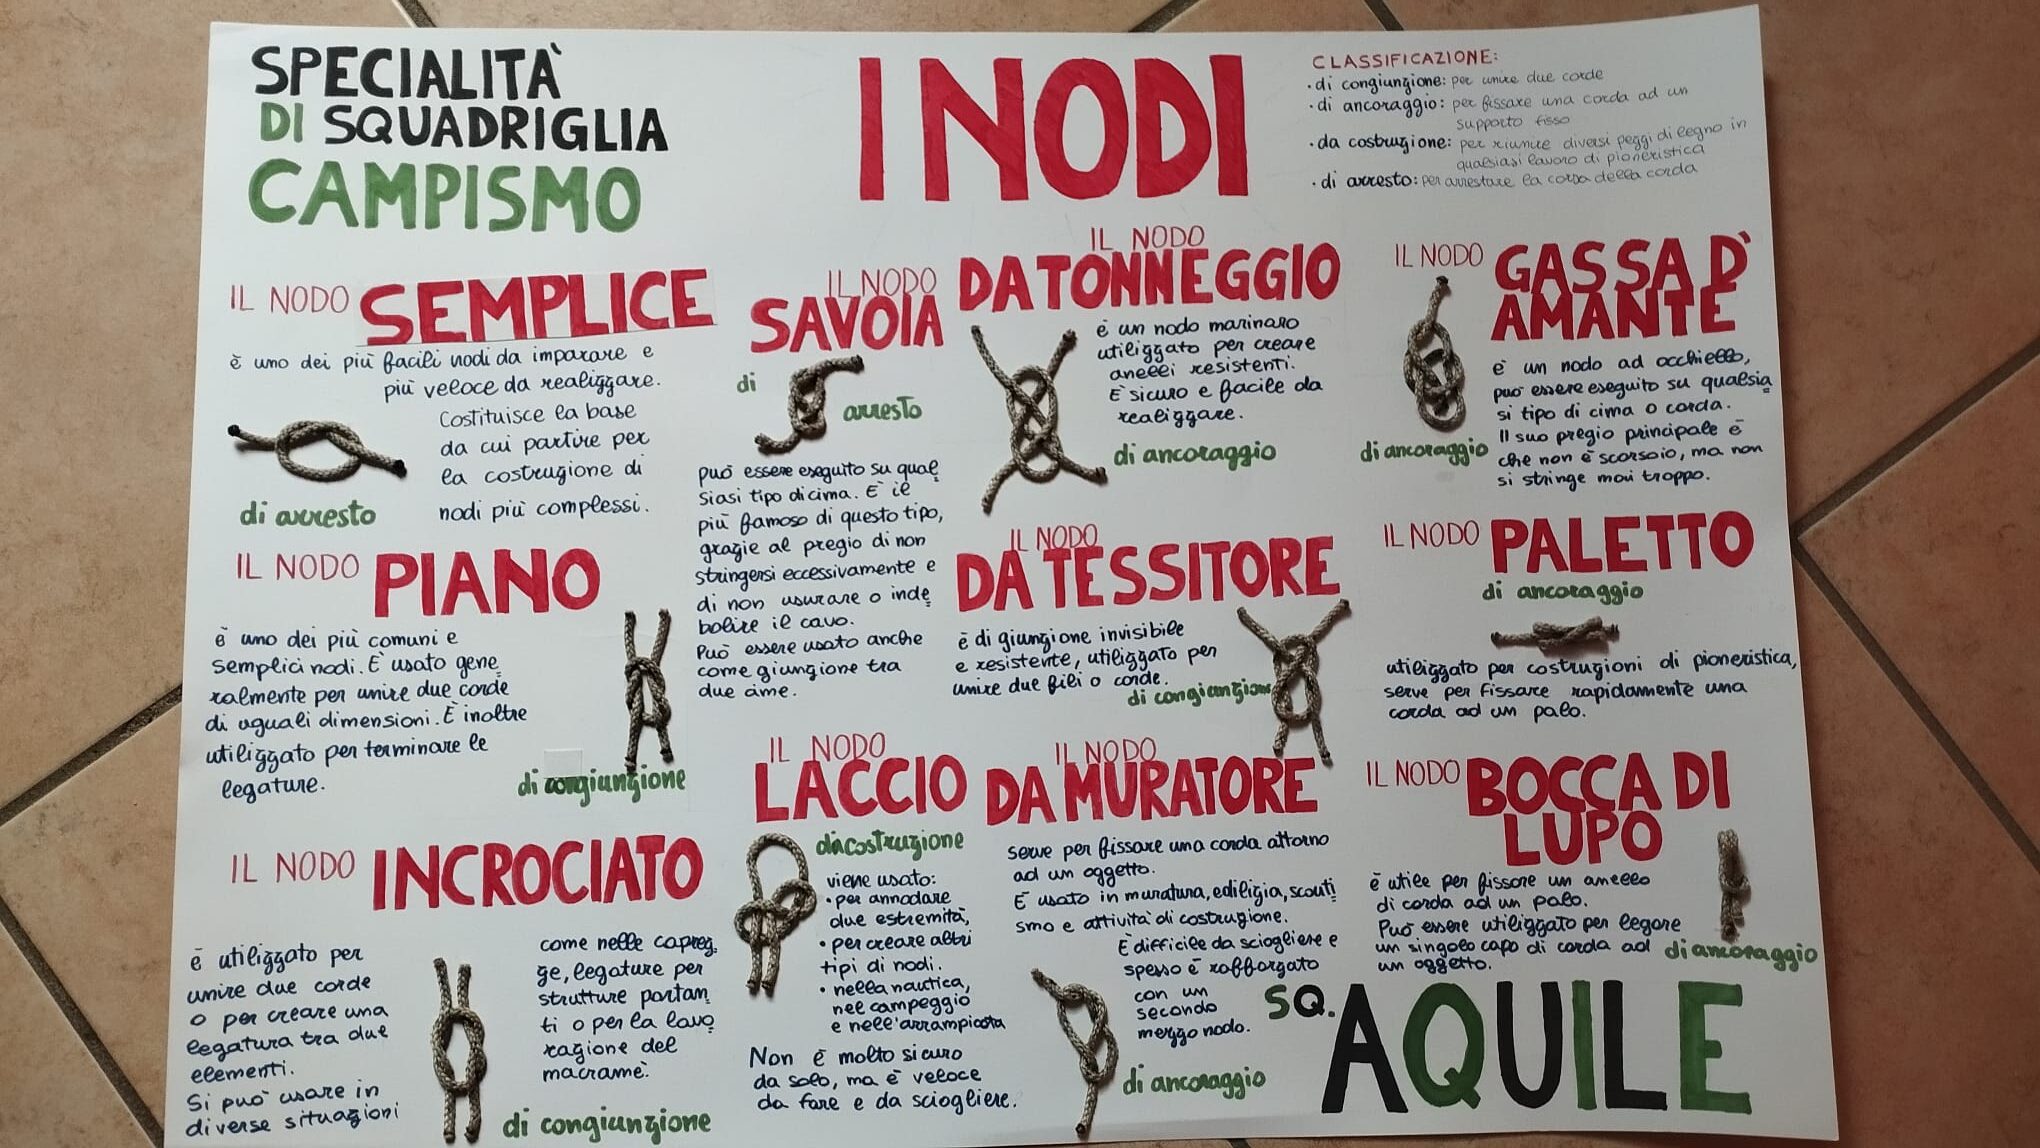 SPECIALITÀ
DI SQUADRIGLIA
CAMPISMO
I NODI
CLASSIFICAZIONE:
· di congiunzione: per unire due corde
· di ancoraggio: per fissare una corda ad un
supporto fisso
· da costruzione: per riunire diversi pezzi di legno in
qualsiasi lavoro di pioneristica
· di arresto: per arrestare la corsa della corda
IL NODO SEMPLICE
è uno dei più facili nodi da imparare e
più veloce da realizzare.
Costituisce la base
da cui partire per
la costruzione di
nodi più complessi.
di arresto
IL NODO PIANO
è uno dei più comuni e
semplici nodi. È usato gene
ralmente per unire due corde
di uguali dimensioni. È inoltre
utilizzato per terminare le
legature.
di congiunzione
IL NODO INCROCIATO
è utilizzato per
unire due corde
o per creare una
legatura tra due
elementi.
Si può usare in
diverse situazioni
come nelle caprez
ze, legature per
strutture portan
ti o per la lavo
razione del
macramè.
di congiunzione
IL NODO
SAVOIA
di
arresto
può essere eseguito su qual
siasi tipo di cima. È il
più famoso di questo tipo,
grazie al pregio di non
stringersi eccessivamente e
di non usurare o inde
bolire il cavo.
Può essere usato anche
come giunzione tra
due cime.
IL NODO
LACCIO
da costruzione
viene usato:
· per annodare
due estremità,
· per creare altri
tipi di nodi.
· nella nautica,
nel campeggio
e nell'arrampicata
Non è molto sicuro
da solo, ma è veloce
da fare e da sciogliere.
IL NODO
DA TONNEGGIO
è un nodo marinaro
utilizzato per creare
anelli resistenti.
È sicuro e facile da
realizzare.
di ancoraggio
IL NODO
DA TESSITORE
è di giunzione invisibile
e resistente, utilizzato per
unire due fili o corde.
di congiunzione
IL NODO
DA MURATORE
serve per fissare una corda attorno
ad un oggetto.
È usato in muratura, edilizia, scouti
smo e attività di costruzione.
È difficile da sciogliere e
spesso è rafforzato
con un
secondo
mezzo nodo.
di ancoraggio
IL NODO GASSA D'
AMANTE
è un nodo ad occhiello,
può essere eseguito su qualsia
si tipo di cima o corda.
Il suo pregio principale è
che non è scorsoio, ma non
si stringe mai troppo.
di ancoraggio
IL NODO PALETTO
di ancoraggio
utilizzato per costruzioni di pioneristica,
serve per fissare rapidamente una
corda ad un palo.
IL NODO BOCCA DI
LUPO
è utile per fissare un anello
di corda ad un palo.
Può essere utilizzato per legare
un singolo capo di corda ad
un oggetto.
di ancoraggio
SQ. AQUILE